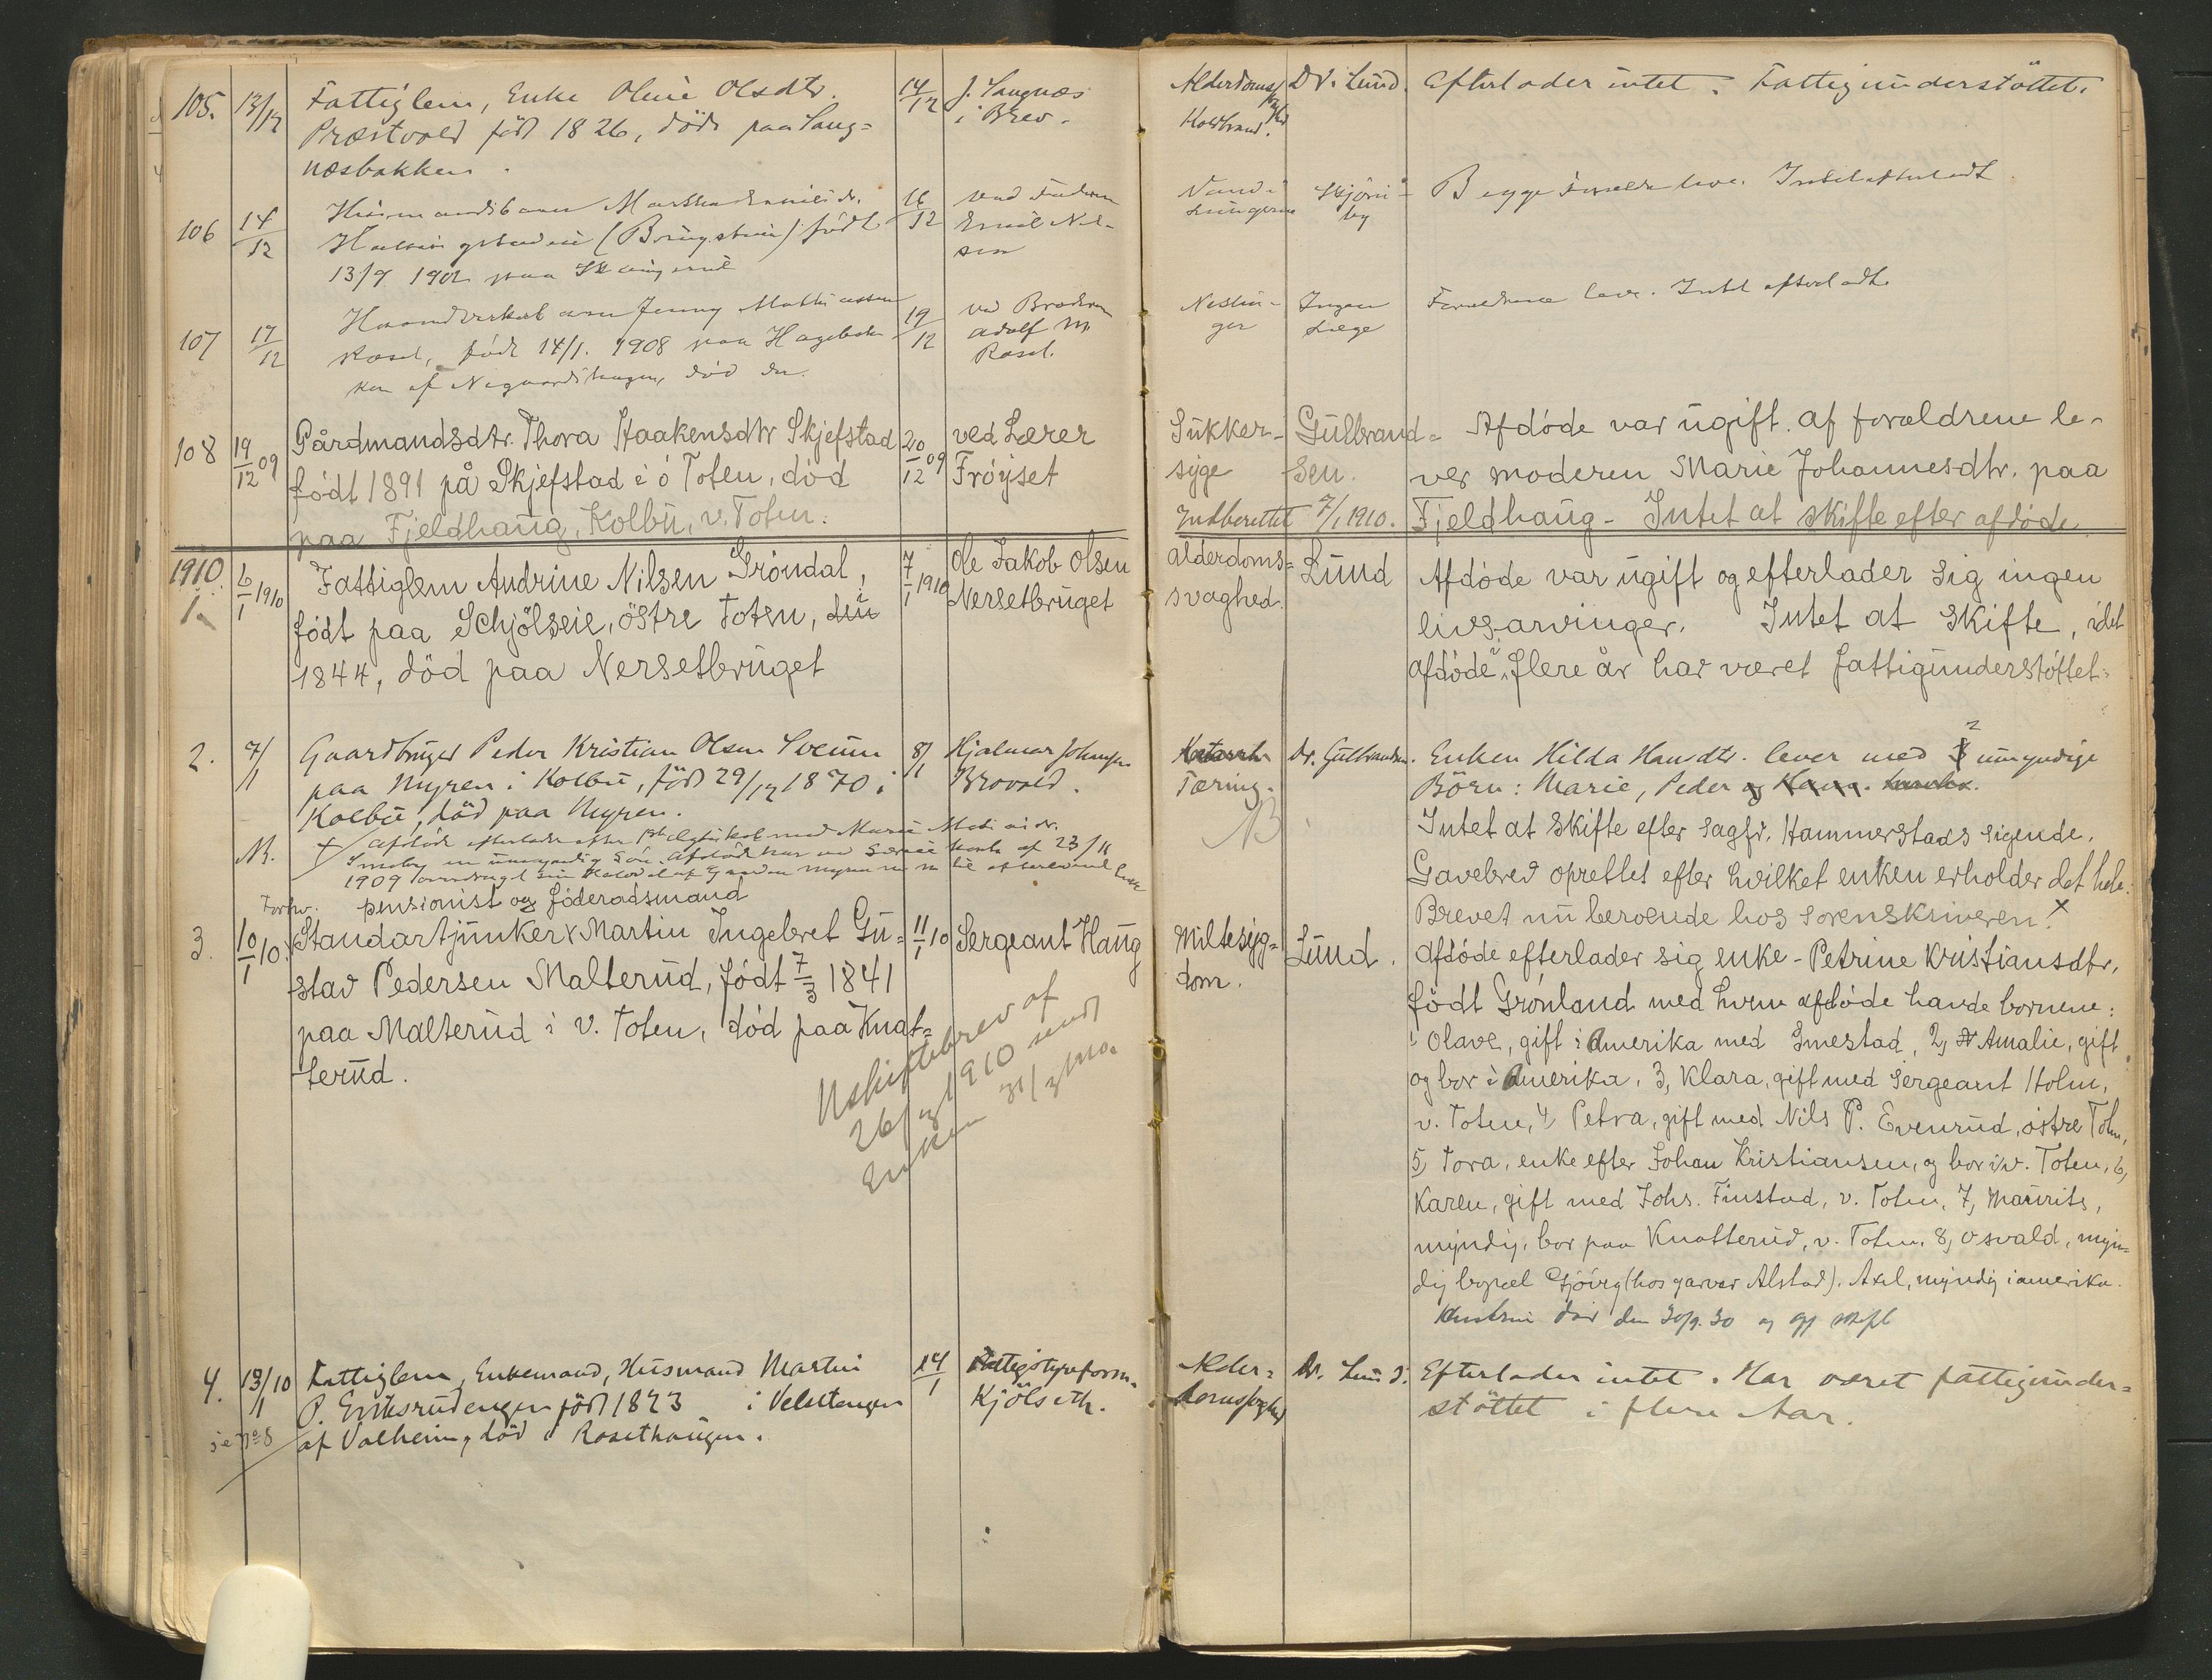 105. 13/12 Fattiglem, Enke Oline Olsdtr. 14/12 J. Saugnæs Alderdoms Dr. Lund. Efterlader intet. Fattigunderstöttet.
Præstvold född 1826, döde paa Saug= i Brev. Koldbrand.
næsbakken.
106 14/12 16/12 ved Faderen Vand i Skjöni Begge Forældre leve. Intet efterladt.
(Bringstuen) född Emil Nil- Lungerne by
13/9 1902 paa sen
107 17/12 Jenny Mathiassen 19/12 ved Broderen Ingen Forældrene leve. Intet efterladt.
Roset, född 14/1. 1908 paa Hagebak- Adolf M. ger Læge
ken af Negaardshagen, död der. Roset.
108 19/12 09 Gårdmandsdtr. Thora Haakensdtr Skjefstad 20/12 09 ved Lærer Sukker- Gulbrand= Afdöde var ugift. af forældrene le-
födt 1891 på Skjefstad i ö Toten, död Fröyset syge sen. ver moderen Marie Johannesdtr. paa
paa Fjeldhaug, Kolbu, v. Toten. Indberettet 7/1 1910. Fjeldhaug - Intet at skifte efter afdöde
1910. 6/1 1910 Fattiglem Andrine Nilsen Gröndal, 7/1 1910 Ole Jakob Olsen alderdoms= Lund Afdöde var ugift og efterlader sig ingen
1. födt paa Schjölseie, östre Toten, den Nersetbruget svaghed. livsarvinger. Intet at skifte, idet
1844, död paa Nersetbruget afdöde i flere år har været fattigunderstöttet.
2. 7/1 Gaardbruger Peder Kristian Olsen Sveum 8/1 Hjalmar Johansen Katarrh Dr. Gulbrandsen. Enken Hilda Hansdtr. lever med 3 2 umyndige
paa Myren i Kolbu, född 29/12 1870 i Brovold. Tæring. Börn: Marie, Peder og
Kolbu, död paa Myren. NB Intet at skifte efter sagfr. Hammerstads sigende.
NB. × afdöde efterlader efter 1st Ægteskab med Marie Gavebrev oprettet efter hvilket enken erholder det hele.
en umyndig Sön. Afdöde har ved af 23/11 Brevet nu beroende hos sorenskriveren. ×
1909 overdraget sin af Gaarden Myren til efterlevende Enke
Forhv. pensionist og föderadsmand
3. 10/1 10. Standartjunker × Martin Ingebret Gu= 11/1 10 Sergeant Haug Miltesyg= Lund. Afdöde efterlader sig enke - Petrine Kristiansdtr,
stav Pedersen Malterud, födt 7/3 1841 dom. födt Grönland med hvem afdöde havde bornene:
paa Malterud i V. Toten, död paa Knat= 1 Olave, gift i Amerika med Smestad, 2, Amalie, gift
terud. og bor i Amerika, 3, Klara, gift med sergeant Holm,
Uskiftebrev af v. Toten, 4, Petra, gift med Nils P. Evenrud, östre Toten,
26/3 1910 sendt 5, Tora, enke efter Johan Kristiansen, og bor i v. Toten, 6,
Enken 31/3 Karen, gift med Johs. Finstad, v. Toten, 7, Maurits,
myndig, bor paa Knatterud, v. Toten, 8, Osvald, myn=
dig bopæl Gjövig (hos garver Alstad). Axel, myndig i amerika.
död den 30/9. 30
4. 13/1 10 Fattiglem, Enkemand, Husmand Martin 14/1 Fattigstyreform. Alder= Dr. Lund. Efterlader intet. Har været fattigunder=
P. Eriksrudengen född 1823 i Velstangen Kjölseth. domssvaghed stöttet i flere Aar.
se no 8 af Valheim, död i Rosethaugen.